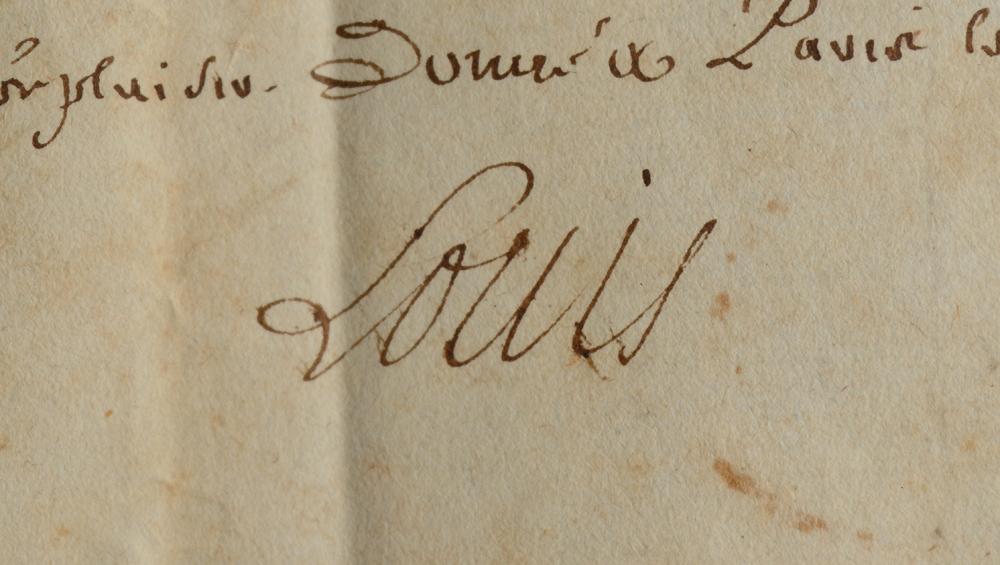 plaisir. Donné a Paris le
Louis